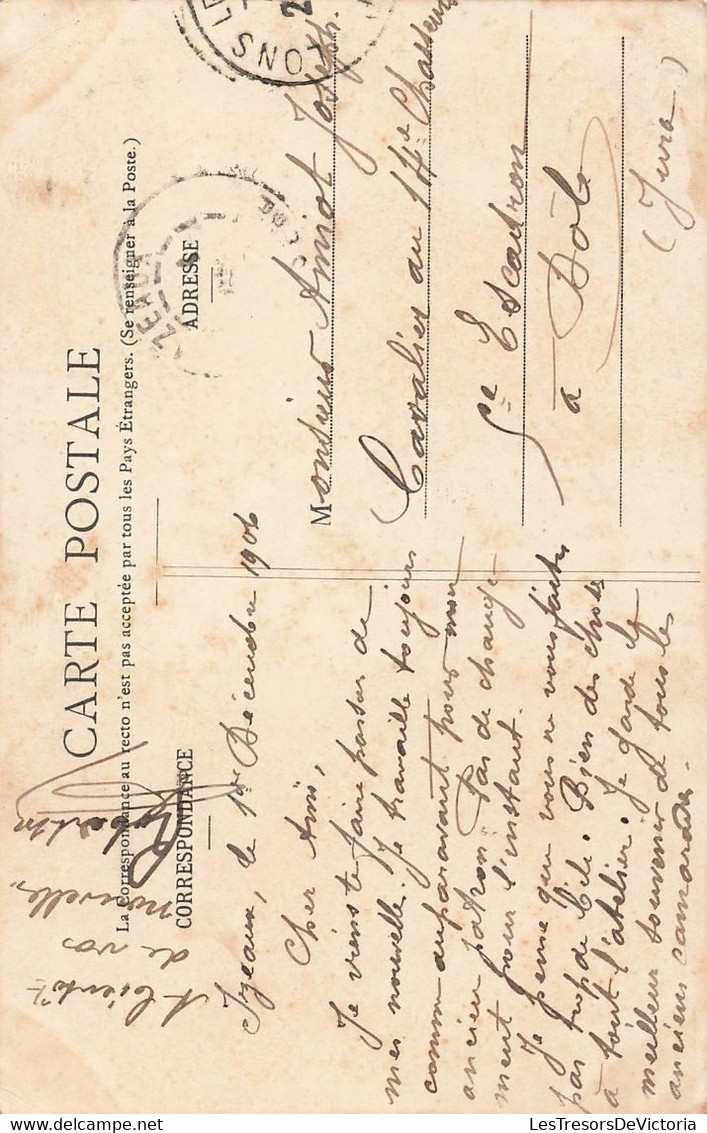 CARTE POSTALE
La Correspondance au recto n'est pas acceptée par tous les Pays Étrangers. (Se renseigner à la Poste.)
CORRESPONDANCE
ADRESSE
Izeaux, le 1er Décembre 1906
Cher Ami,
Je viens te faire passer de
mes nouvelle. Je travaille toujours
comm auparavant pour mon
ancien patron Pas de change-
ment pour l'instant.
Je pense que vous ne vous faites
pas trop de bile. Bien des choses
à tout l'atelier. Je garde le
meilleur souvenir de tous les
anciens camarades.
A bientôt
de vos
nouvelles,
Monsieur Amiot Joseph
Cavalier au 14e Chasseurs
5e Escadron
à Dôle
(Jura)
LONS LE
IZEAUX
LesTresorsDeVictoria